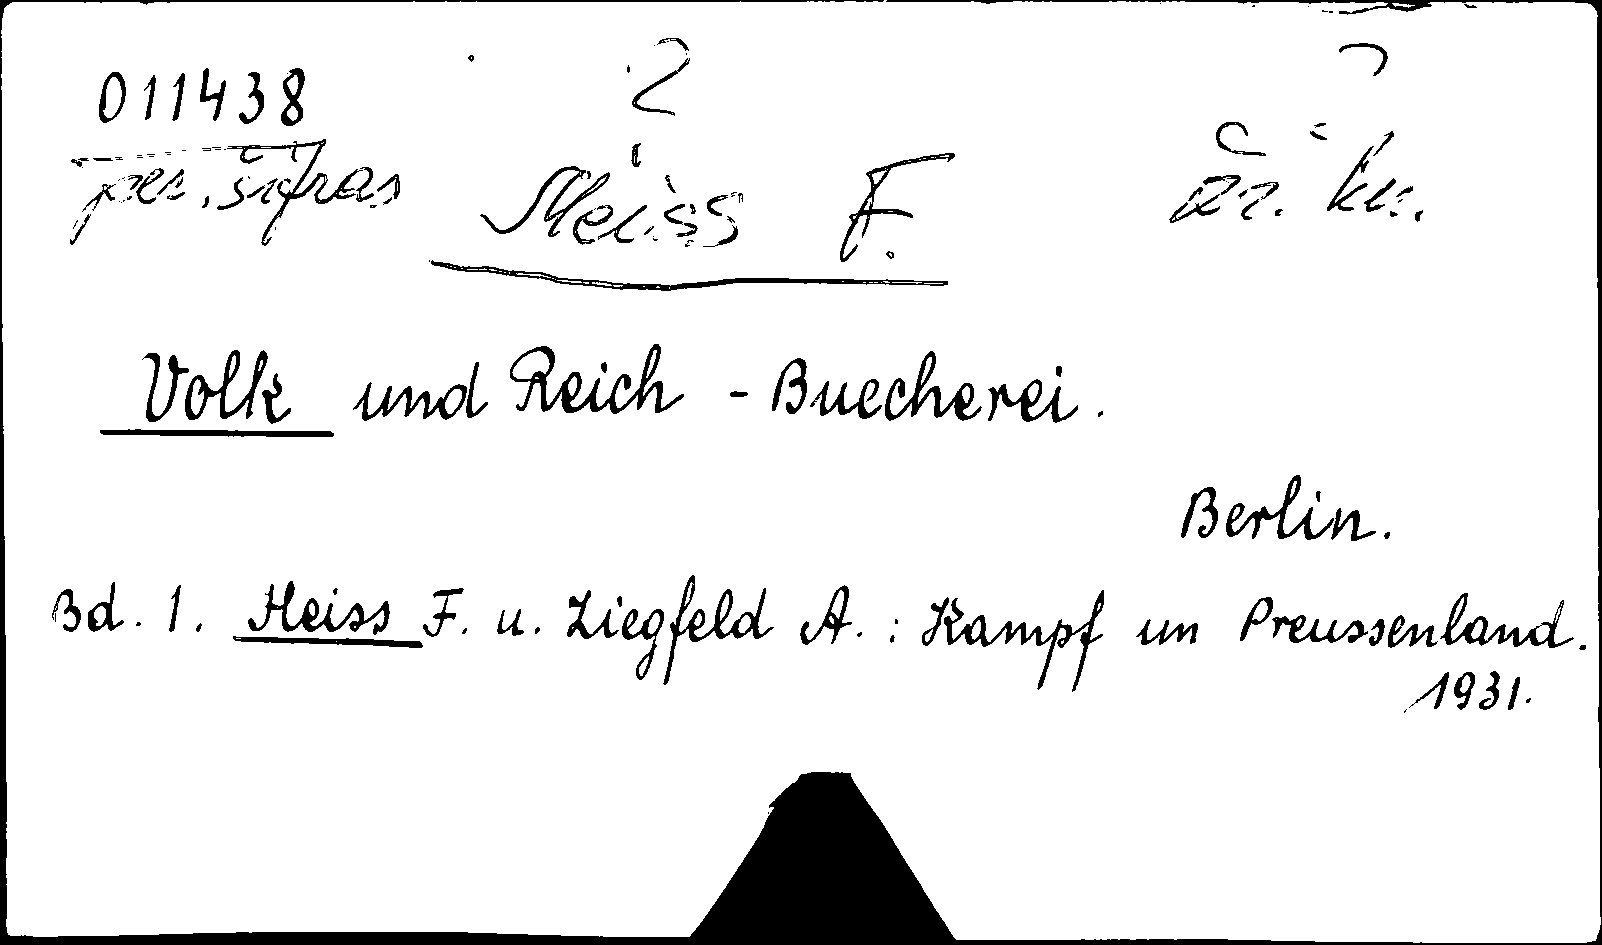 011438
per. šifras
Heiss F.
Volk und Reich - Buecherei.
Berlin.
Bd. 1. Heiss F. u. Ziegfeld A. : Kampf um Preussenland.
1931.